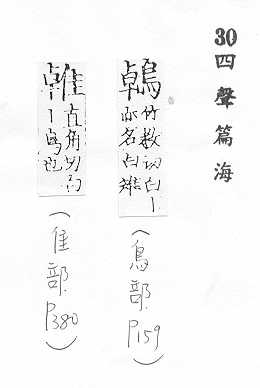 30四聲篇海
鵫 竹教切白丨
亦名白雉
(鳥部 P159)
直角切
丨鳥也
(隹部 P380)